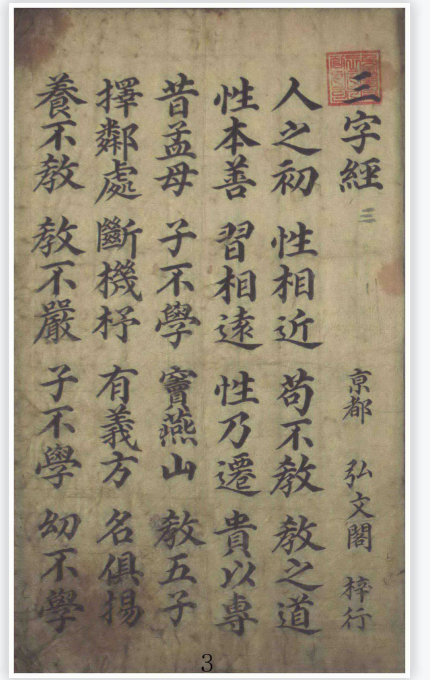 三字經 三 京都 弘文閣 梓行
人之初 性相近 苟不教 教之道
性本善 習相遠 性乃遷 貴以專
昔孟母 子不學 竇燕山 教五子
擇鄰處 斷機杼 有義方 名俱揚
養不教 教不嚴 子不學 幼不學
3